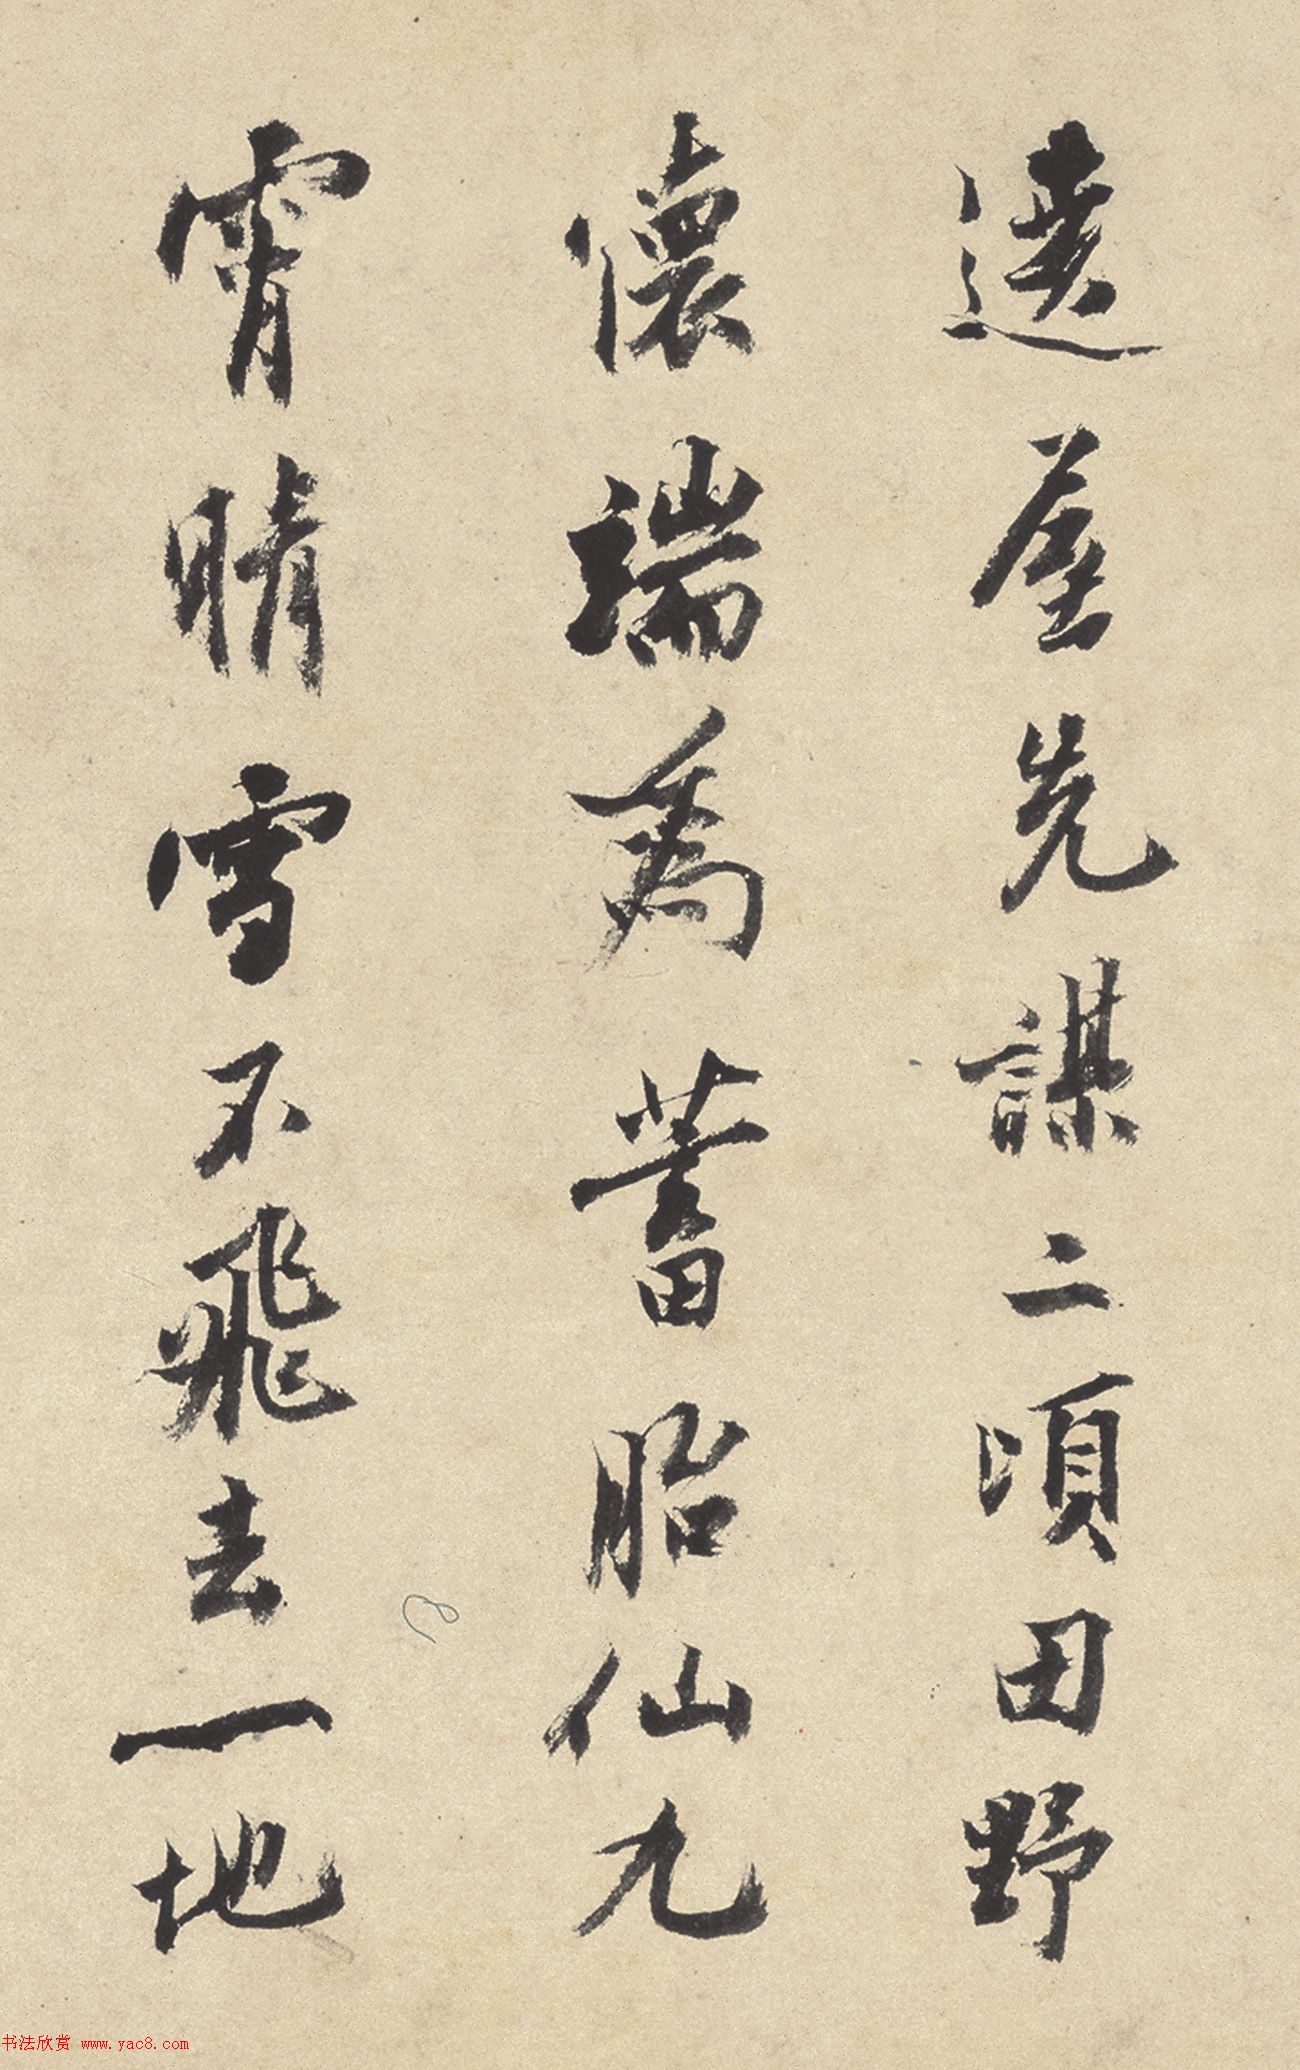 遶屋先謀二頃田野
懷端為蓄胎仙九
霄晴雪不飛去一地
书法欣赏 www.yac8.com